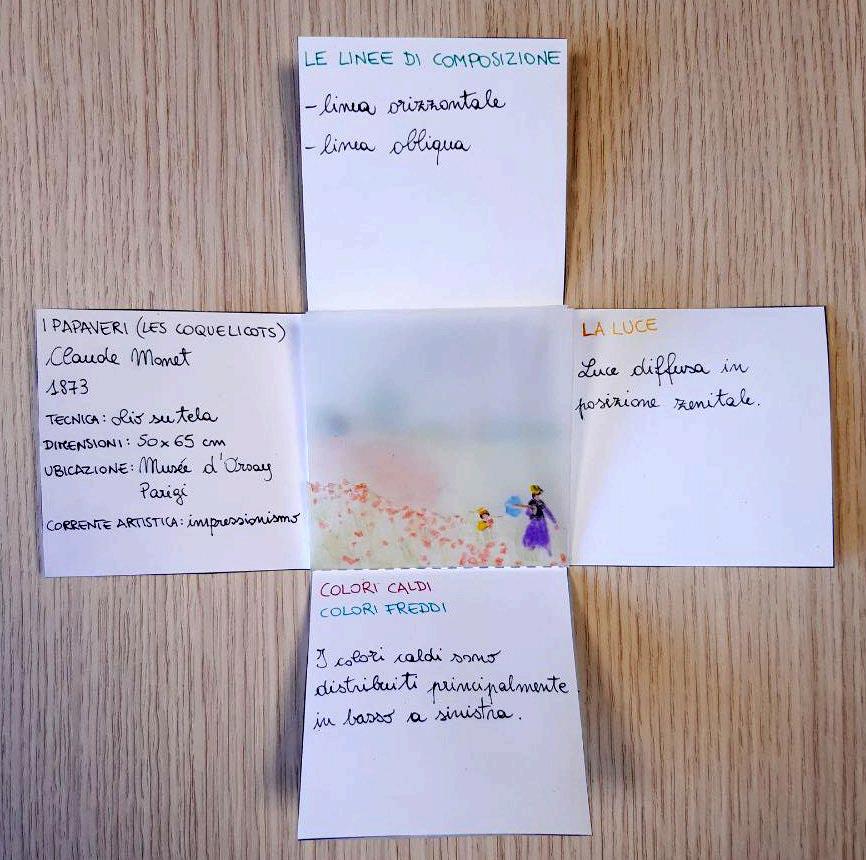 LE LINEE DI COMPOSIZIONE
- linea orizzontale
- linea obliqua
I PAPAVERI (LES COQUELICOTS)
Claude Monet
1873
TECNICA: olio su tela
DIMENSIONI: 50x65 cm
UBICAZIONE: Musée d'Orsay
Parigi
CORRENTE ARTISTICA: impressionismo
LA LUCE
Luce diffusa in
posizione zenitale.
COLORI CALDI
COLORI FREDDI
I colori caldi sono
distribuiti principalmente
in basso a sinistra.